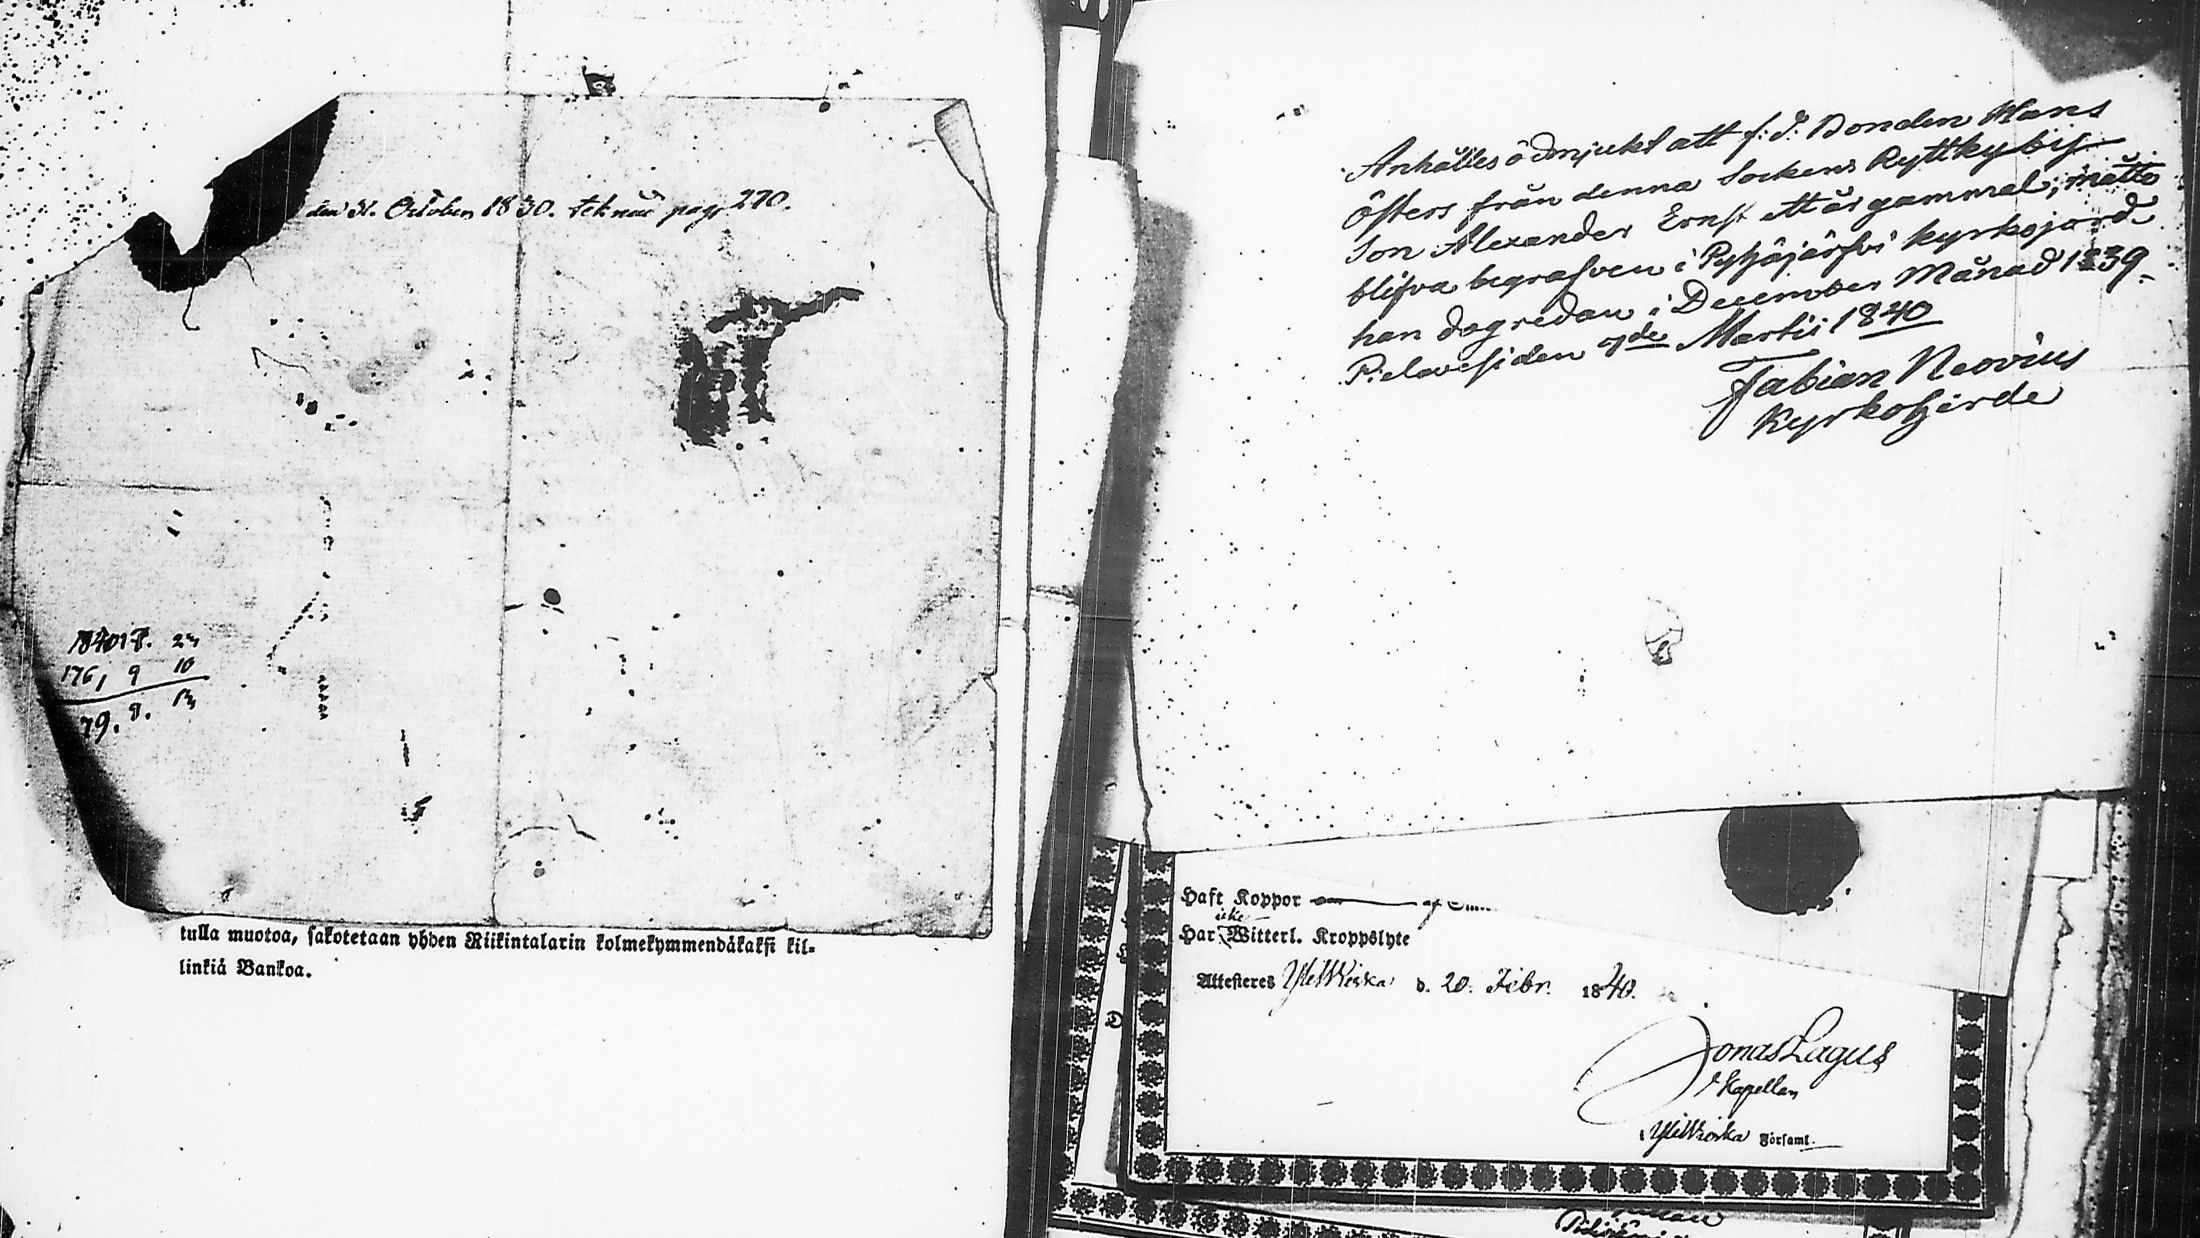 den 31. October 1830. teknad pag. 270.
184017. 24
176, 9 10
79. 8.
tulla muotoa, sakotetaan yhden Riikintalarin kolmekymmendäkaksi kil-
linkiä Bankoa.
Anhålles ödmjukt att f: d: Bonden Hans
Östers från denna Sockens Ryttkyby
Son Alexander Ernst ett år gammal, måtte
blifva begrafven i Pyhäjärfvi kyrkojord
han dog redan i December Månad 1839.
Pielavesi den 7de Martii 1840
Fabian Neovius
Kyrkoherde
Haft Koppor
icke
Har Witterl. Kroppslyte
Attesteres Ylivieska d. 20. Febr. 1840.
Jonas Lagus
Kapellan
i Ylivieska Församl.